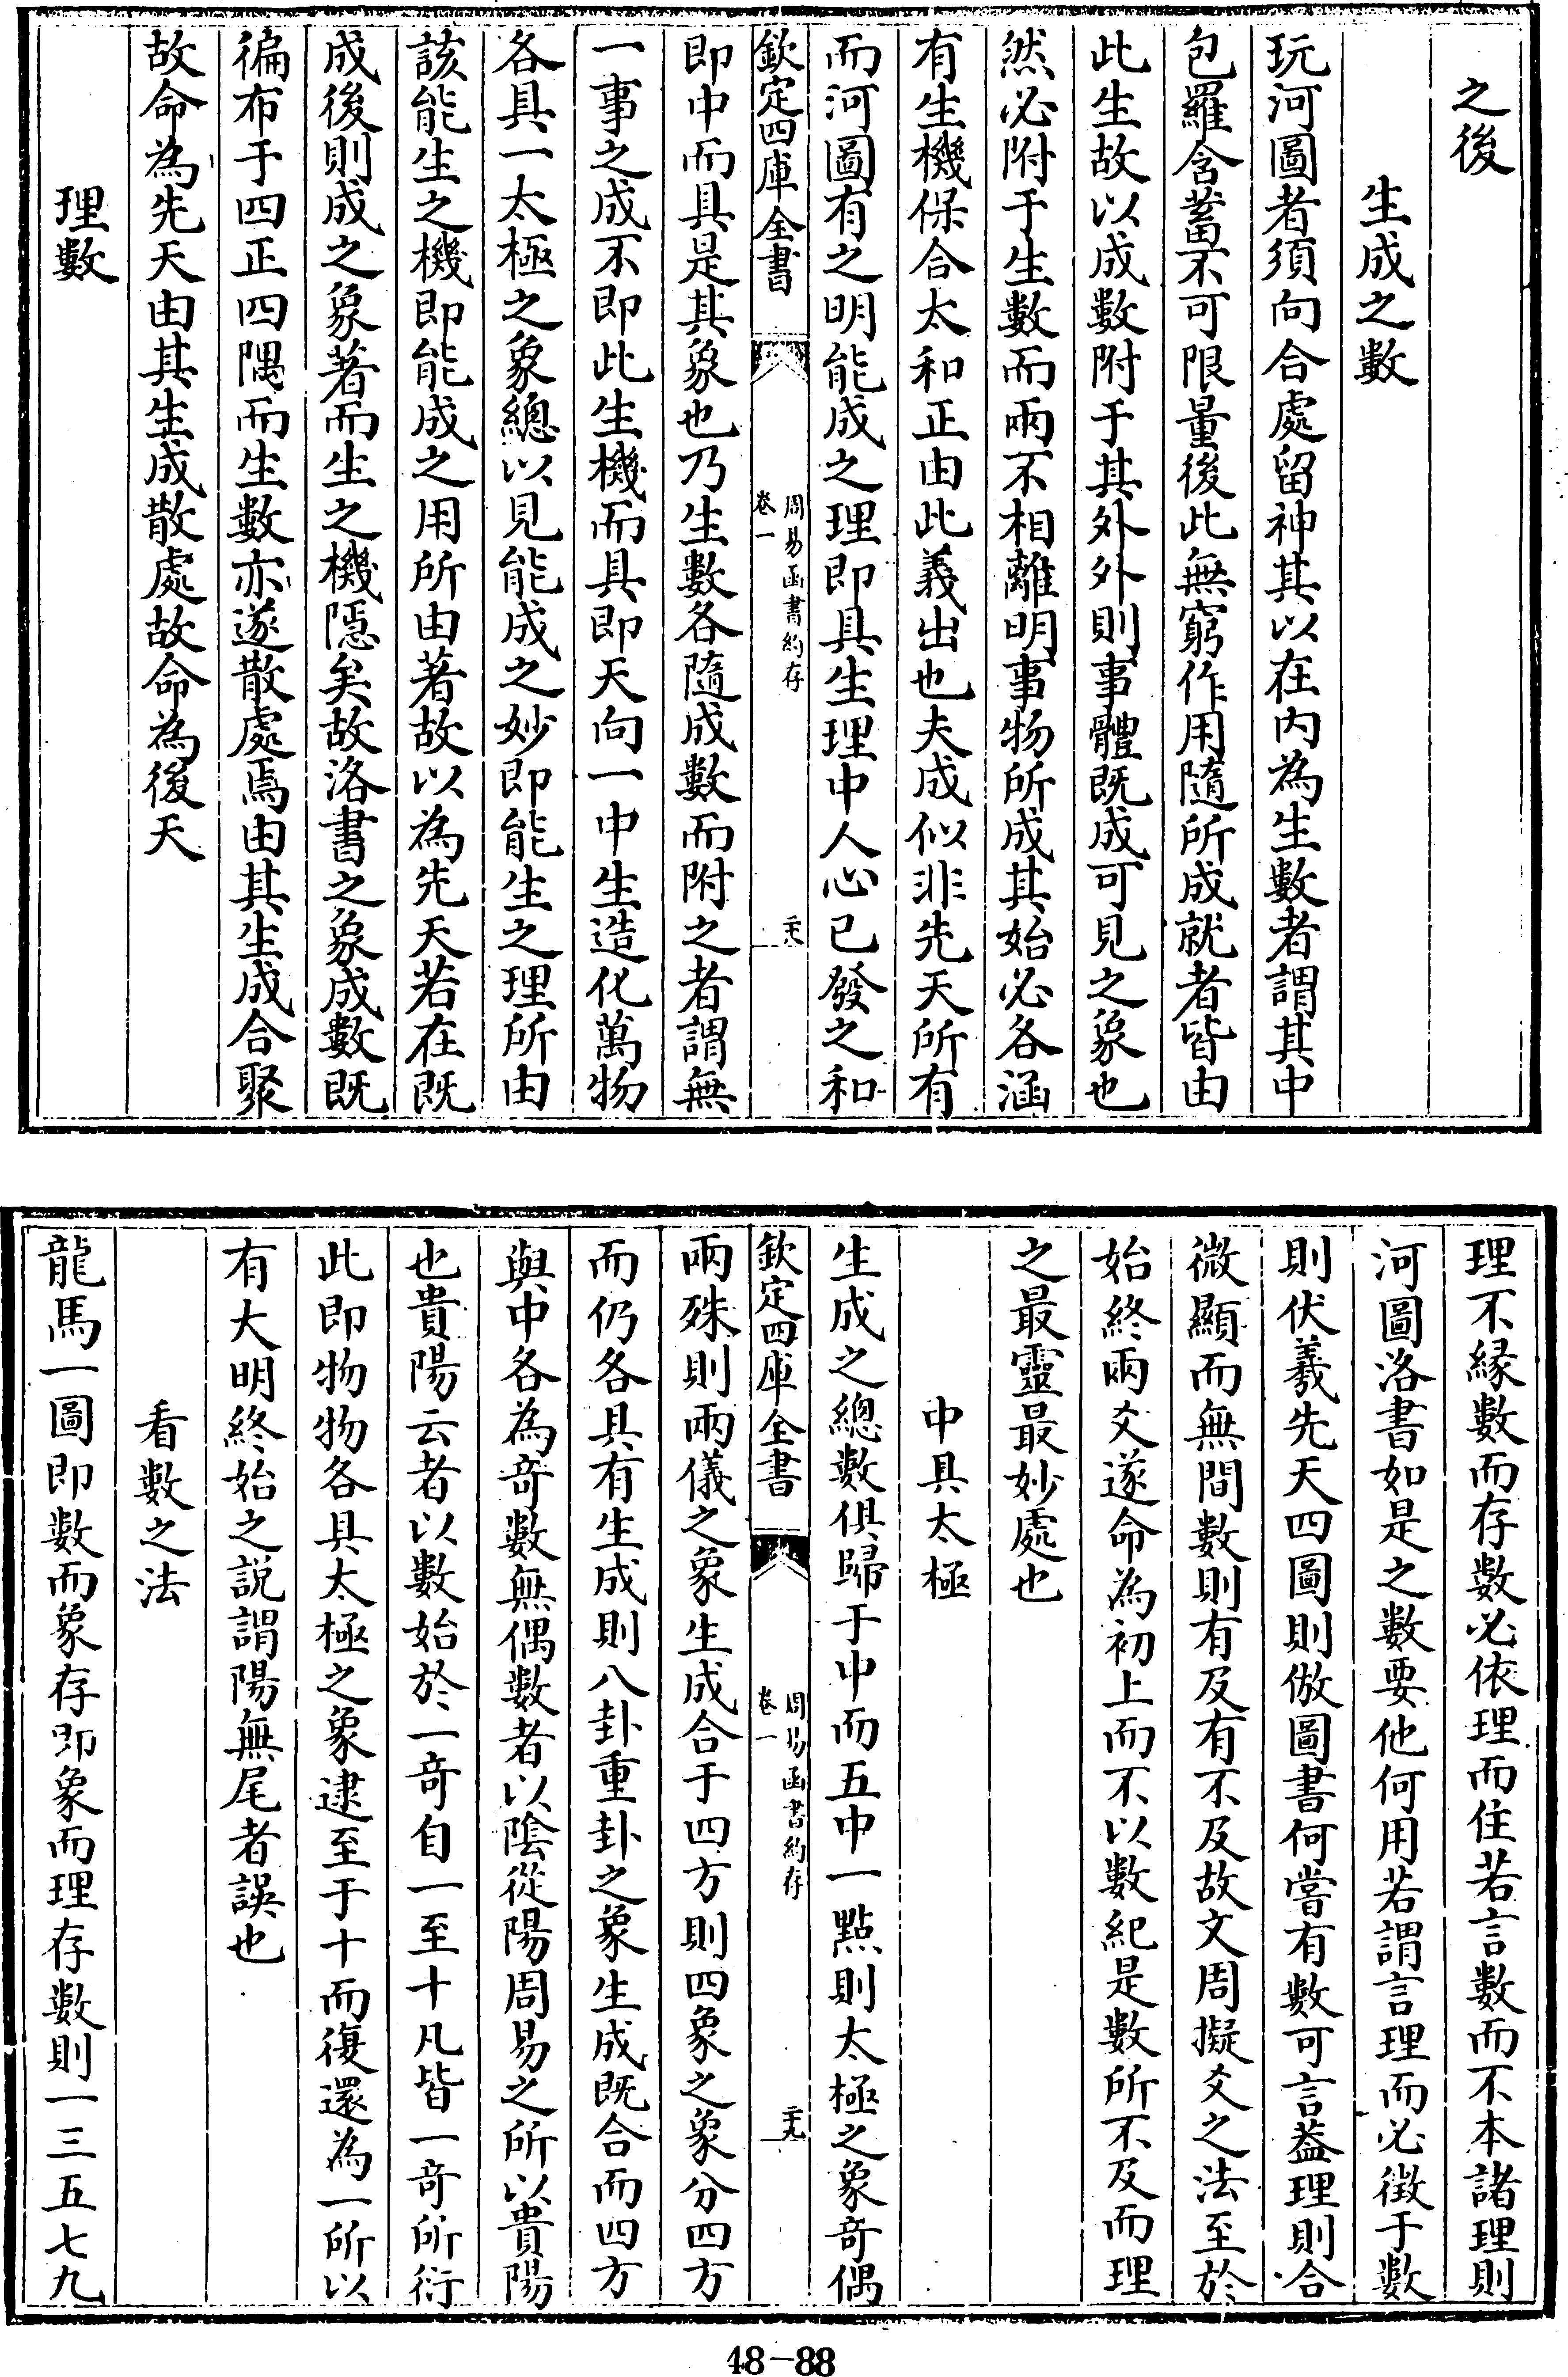 之後
生成之數
玩河圖者須向合處留神其以在内為生數者謂其中
包羅含蓄不可限量後此無窮作用隨所成就者皆由
此生故以成數附于其外外則事體既成可見之象也
然必附于生數而兩不相離明事物所成其始必各涵
有生機保合太和正由此義出也夫成似非先天所有
而河圖有之明能成之理即具生理中人心已發之和
欽定四庫全書
周易函書約存
卷一
二十八
即中而具是其象也乃生數各隨成數而附之者謂無
一事之成不即此生機而具即天向一中生造化萬物
各具一太極之象總以見能成之妙即能生之理所由
該能生之機即能成之用所由著故以為先天若在既
成後則成之象著而生之機隱矣故洛書之象成數既
徧布于四正四隅而生數亦遂散處焉由其生成合聚
故命為先天由其生成散處故命為後天
理數
理不緣數而存數必依理而住若言數而不本諸理則
河圖洛書如是之數要他何用若謂言理而必徴于數
則伏羲先天四圖則倣圖書何嘗有數可言葢理則合
微顯而無間數則有及有不及故文周擬爻之法至於
始終兩爻遂命為初上而不以數紀是數所不及而理
之最靈最妙處也
中具太極
生成之總數俱歸于中而五中一點則太極之象竒偶
欽定四庫全書
周易函書約存
卷一
二十九
兩殊則兩儀之象生成合于四方則四象之象分四方
而仍各具有生成則八卦重卦之象生成既合而四方
與中各為竒數無偶數者以陰從陽周易之所以貴陽
也貴陽云者以數始於一竒自一至十凡皆一竒所衍
此即物物各具太極之象逮至于十而復還為一所以
有大明終始之説謂陽無尾者誤也
看數之法
龍馬一圖即數而象存即象而理存數則一三五七九
48-88